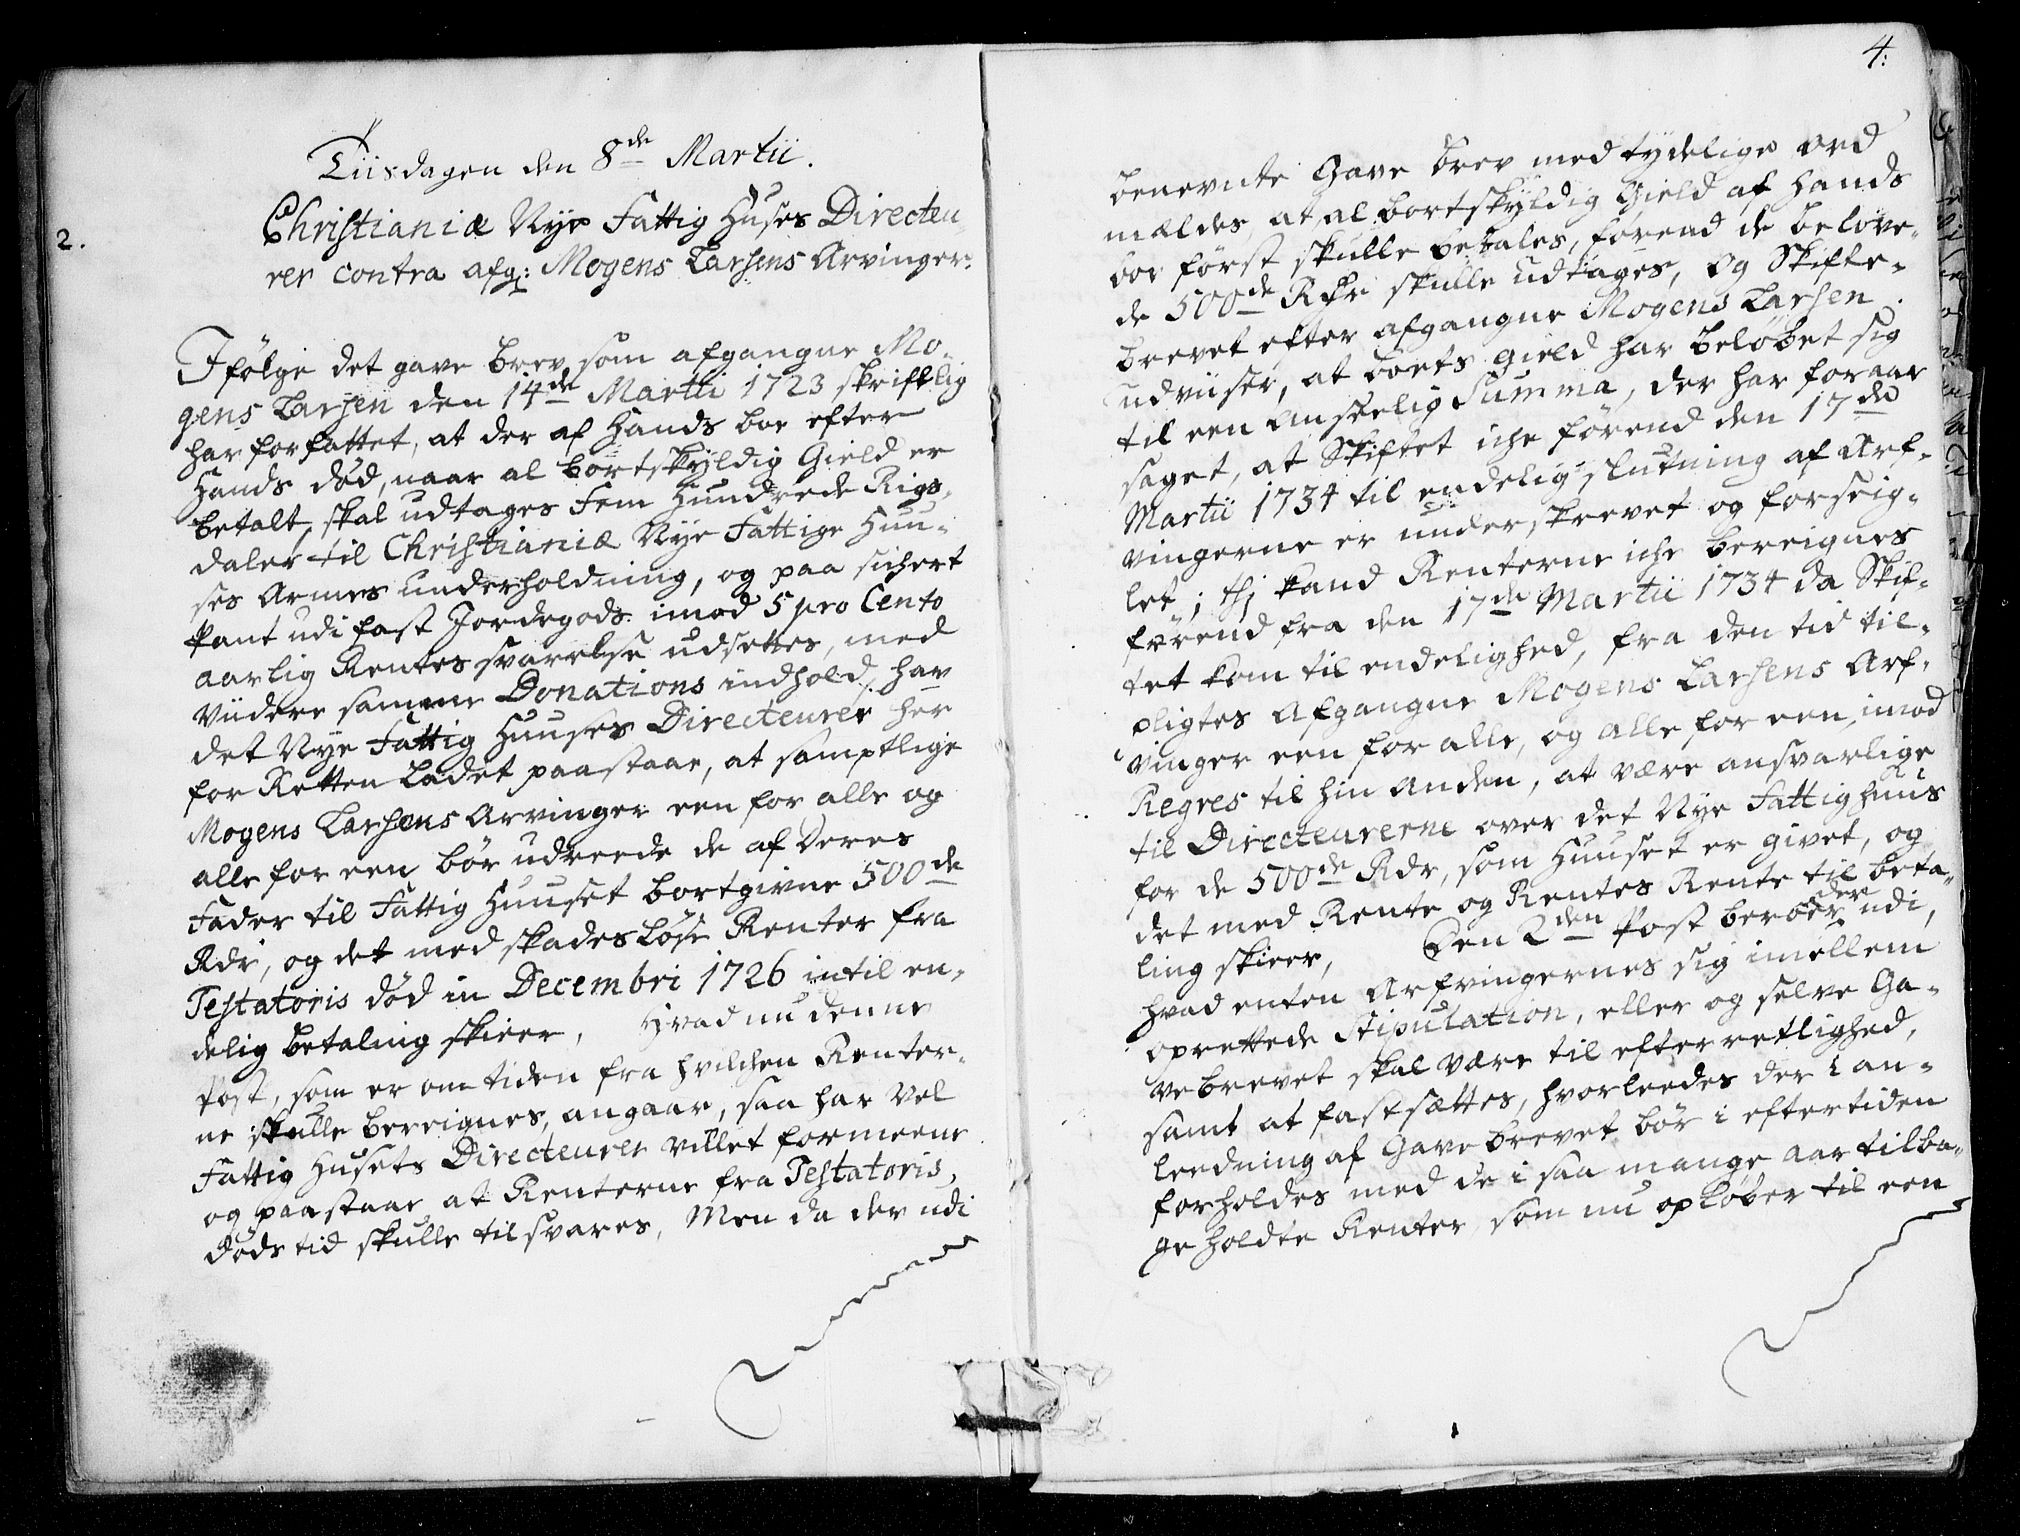 Tiisdagen den 8de Martii.
2.
Christianiæ Nye Fattig Huses Directeu-
rer contra afg: Mogens Larsens Arvinger.
Ifølge det gave brev, som afgangne Mo-
gens Larsen den 14de Martii 1723 skriftlig
har forfattet, at der af Hands boe efter
Hands død, naar al bortskyldig Gield er
betalt, skal udtages Fem Hundrede Rigs-
daler til Christianiæ Nye Fattige Huu-
ses Armes underholdning, og paa sichert
Pant udi fast Jordegods imod 5 pro Cento
aarlig Rentes svarelse udsettes, med
viidere samme Donations indhold, har
det Nye Fattig Huuses Directeurer her
for Retten ladet paastaae, at samptlige
Mogens Larsens Arvinger een for alle og
alle for een bør udreede de af Deres
Fader til Fattig Huuset bortgivne 500de
Rdr, og det med skadesløse Renter fra
Testatoris død in Decembri 1726 intil en-
delig betaling skieer, Hvad nu denne
Post, som er om tiden fra hvilchen Renter-
ne skulle bereignes, angaar, saa har vel
Fattig Husets Directeurer villet formeene
og paastaae at Renterne fra Testatoris
døds tid skulle tilsvares, Men da der udi
4:
benevnte Gave brev med tydelige ord
mældes, at al bortskyldig Gield af Hands
boe først skulle betales, førend de belove-
de 500de Rdr skulle udtages, og Skifte-
brevet efter afgangne Mogens Larsen
udviiser, at boets gield har beløbet sig
til een anseelig Summa, der har foraar
saget, at Skiftet iche førend den 17de
Martii 1734 til endelig slutning af Arf-
vingerne er underskrevet og forseig-
let; thi kand Renterne iche bereignes
førend fra den 17de Martii 1734 da Skif-
tet kom til endelighed, fra den tid til-
pligtes Afgangne Mogens Larsens Arf-
vinger een for alle, og alle for een, imod
Regres til hin anden, at være ansvarlige
til Directeurerne over det Nye Fattighuus
for de 500de Rdr, som Huuset er givet, og
det med Rente og Rentes Rente til beta-
ling skieer, Den 2den Post beroer der udi,
hvad enten Arfvingernes sig imellem
oprettede Stipulation, eller og selve Ga-
vebrevet skal være til efterretlighed,
samt at fastsættes, hvorleedes der i an-
leedning af Gavebrevet bør i eftertiden
forholdes med de i saa mange aar tilba-
ge holdte Renter, som nu opløber til een